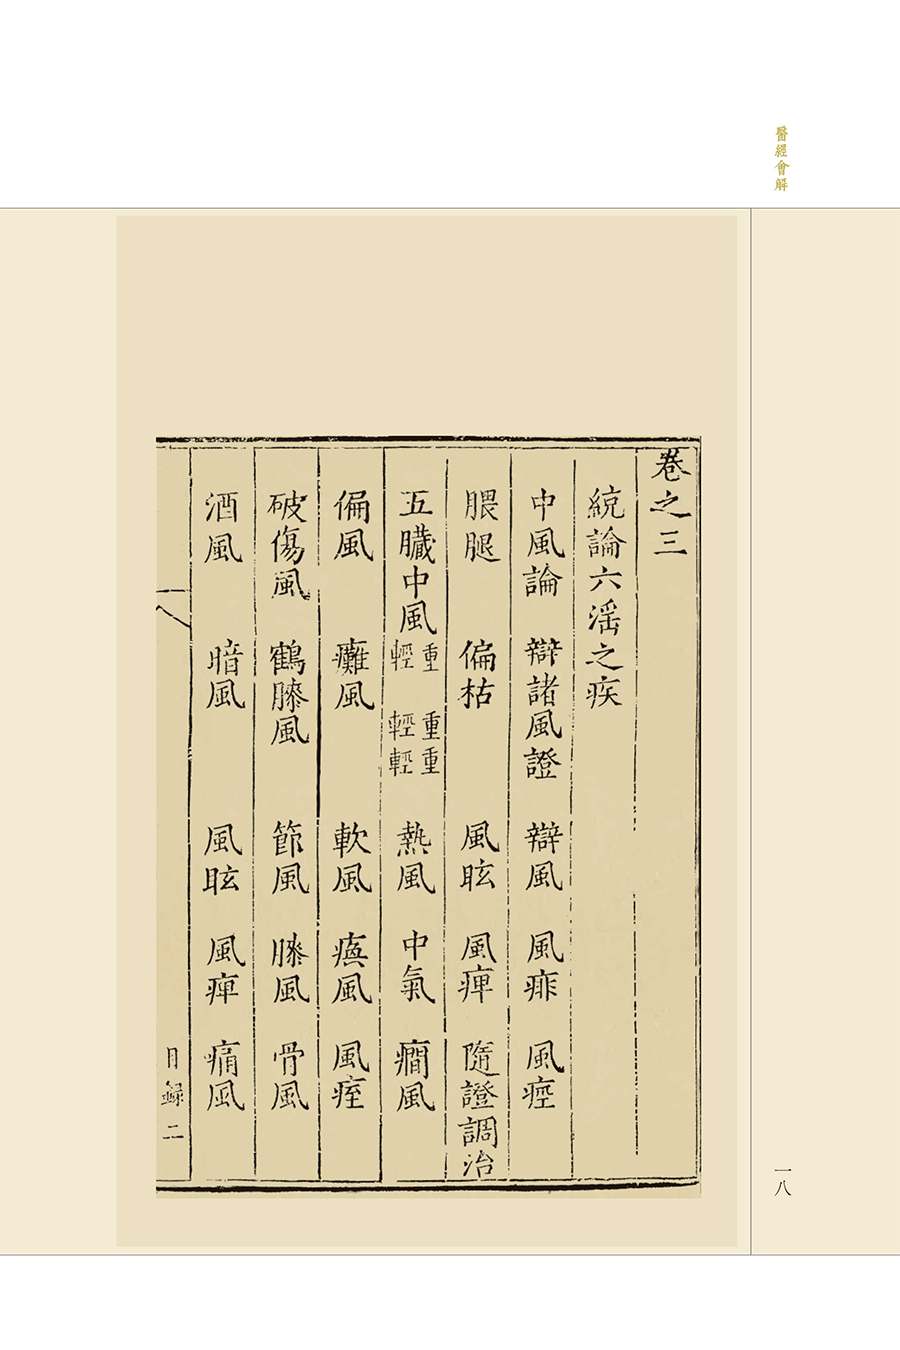 醫經會解
卷之三
統論六淫之疾
中風論 辯諸風證 辯風 風痱 風痙
腲腿 偏枯 風眩 風痺 隨證調治
五臟中風 重輕 重輕重輕 熱風 中氣 癇風
偏風 癱風 軟風 瘓風 風痓
破傷風 鶴膝風 節風 膝風 骨風
酒風 暗風 風眩 風痺 痛風
目錄 二
一八